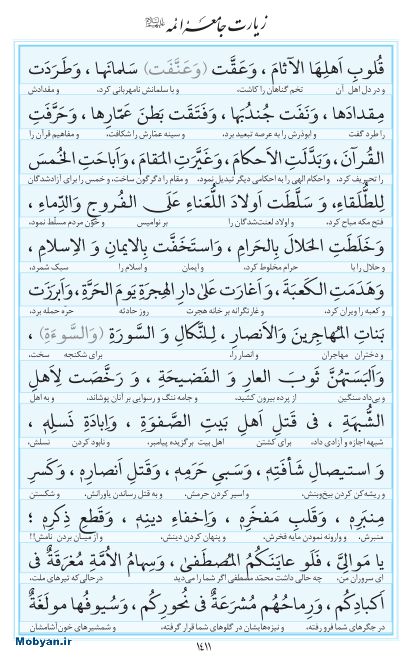 زیارت جامعهٔ ائمه علیهم‌السلام
قُلوبِ اَهلِهَا الآثامَ ، وَعَقَّت (وَعَنَّفَت) سَلمانَها ، وَطَرَدَت
و در دل اهل آن تخم گناهان را کاشت، و با سلمانش نامهربانی کرد، و مقدادش
مِقدادَها ، وَنَفَت جُندُبَها ، وَفَتَقَت بَطنَ عَمّارِها ، وَحَرَّفَتِ
را طرد گفت و ابوذرش را به عرصه تبعید برد، و سینه عمّارش را شکافت، و مفاهیم قرآن را
القُرآنَ ، وَبَدَّلَتِ الاَحکامَ ، وَغَیَّرَتِ المَقامَ ، وَاَباحَتِ الخُمسَ
را تحریف کرد، و احکام الهی را به احکامی دیگر تبدیل نمود، و مقام را دگرگون ساخت، و خمس را برای آزادشدگان
لِلطُّلَقاءِ ، وَ سَلَّطَت اَولادَ اللُّعَناءِ عَلَی الفُروجِ وَالدِّماءِ ،
فتح مکه مباح کرد، و اولاد لعنت‌شدگان را بر نوامیس و خون مردم مسلط نمود،
وَ خَلَطَتِ الحَلالَ بِالحَرامِ ، وَاستَخَفَّت بِالایمانِ وَ الاِسلامِ ،
و حلال را با حرام مخلوط کرد، و ایمان و اسلام را سبک شمرد،
وَهَدَمَتِ الکَعبَةَ ، وَ اَغارَت عَلیٰ دارِ الهِجرَةِ یَومَ الحَرَّةِ ، وَاَبرَزَت
و کعبه را ویران کرد، و غارتگرانه بر خانه هجرت روز حادثه حزه حمله برد،
بَناتِ المُهاجِرینَ وَالاَنصارِ ، لِلنَّکالِ وَ السَّورَةِ (وَالسَّوءَةِ) ،
و دختران مهاجران و انصار را، برای شکنجه سخت،
وَاَلبَسَتهُنَّ ثَوبَ العارِ وَ الفَضیحَةِ ، وَ رَخَّصَت لِاَهلِ
و بی‌داد سنگین از پرده بیرون کشید، و جامه ننگ و رسوایی بر آنان پوشاند، و به اهل
الشُّبهَةِ ، فی قَتلِ اَهلِ بَیتِ الصَّفوَةِ ، وَاِبادَةِ نَسلِهِ ،
شبهه اجازه و آزادی داد، برای کشتن اهل بیت برگزیده پیامبر، و نابود کردن نسلش،
وَ استیصالِ شَأفَتِهِ ، وَسَبیِ حَرَمِهِ ، وَقَتلِ اَنصارِهِ ، وَکَسرِ
و ریشه‌کن کردن بیخ‌وبنش، و اسیر کردن حرمش، و به قتل رساندن یاورانش، و شکستن
مِنبَرِهِ ، وَقَلبِ مَفخَرِهِ ، وَاِخفاءِ دینِهِ ، وَقَطعِ ذِکرِهِ ؛
منبرش، و وارونه نمودن مایه فخرش، و پنهان کردن دینش، و از میان بردن نامش!!
یا مَوالِیَّ ، فَلَو عایَنَکُمُ المُصطَفیٰ ، وَسِهامُ الاُمَّةِ مُغرَقَةٌ فی
ای سروران من، چه حالی داشت محمّد مصطفی اگر شما را می‌دید درحالی‌که تیرهای ملت،
اَکبادِکُم ، وَرِماحُهُم مُشرَعَةٌ فی نُحورِکُم ، وَسُیوفُها مولَغَةٌ
در جگرهای شما فرو رفته، و نیزه‌هایشان در گلوهای شما قرار گرفته، و شمشیرهای خون‌آشامشان
۱۴۱۱
Mobyan.ir